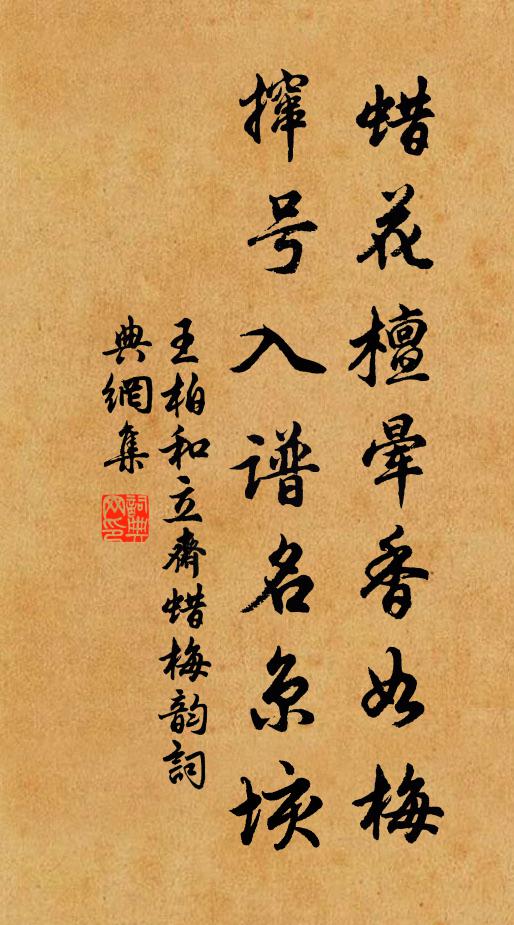 蜡花檀晕香如梅
撺号入谱名亦垓
王柏和立齋蜡梅韵詞
典網集
詞典
网印